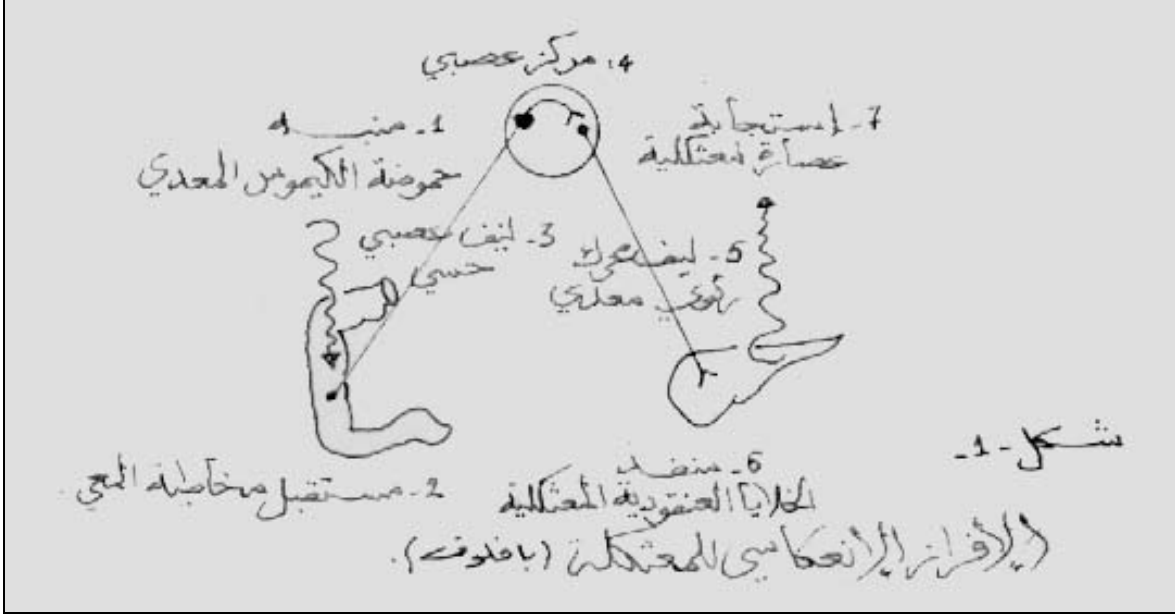 4. مركز عصبي
1- منبه
حموضة الكيموس المعدي
7- إستجابة
عصارة معثكلية
3- ليف عصبي
حسي
5- ليف محرك
رئوي معدي
2- مستقبل مخاطية المعي.
6- منفذ
الخلايا العنقودية المعثكلية
شكل -1-
(الإفراز الإنعكاسي للمعثكلة (بافلوف).